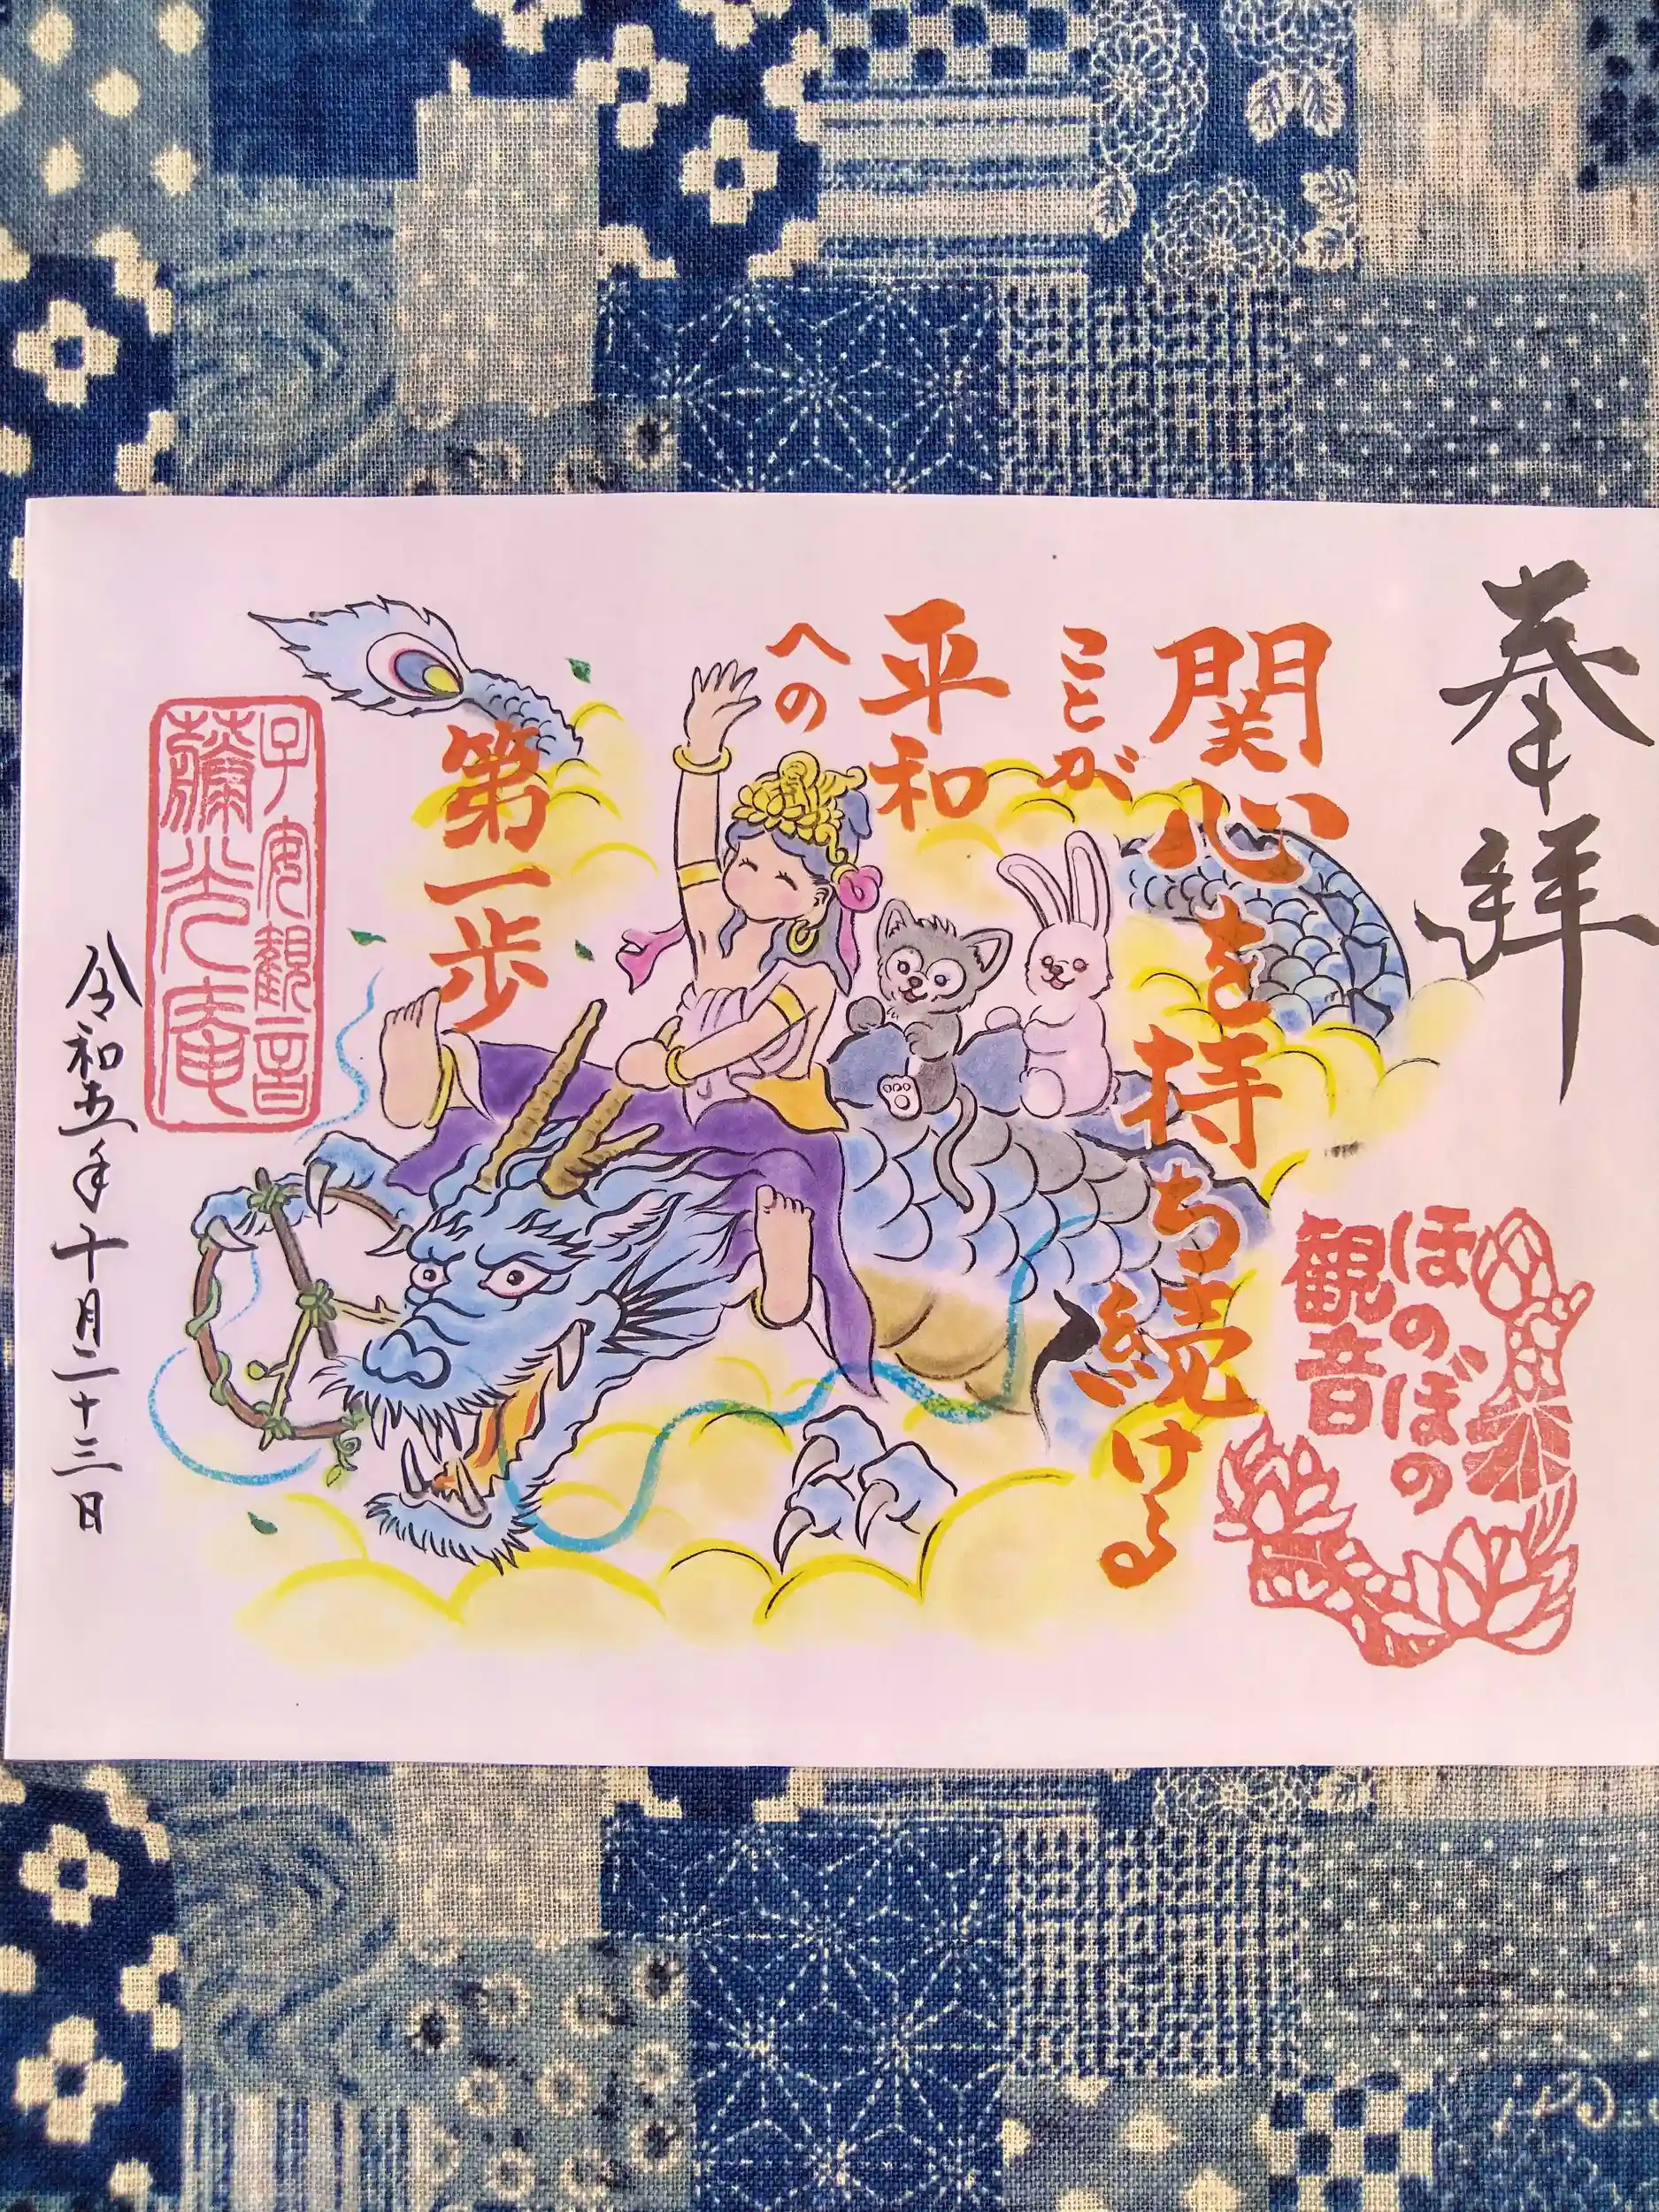 奉拝
関心を持ち続ける
ことが
平和
への
第一歩
ほのぼの
観音
子安観音
薬光庵
令和五年十月二十三日